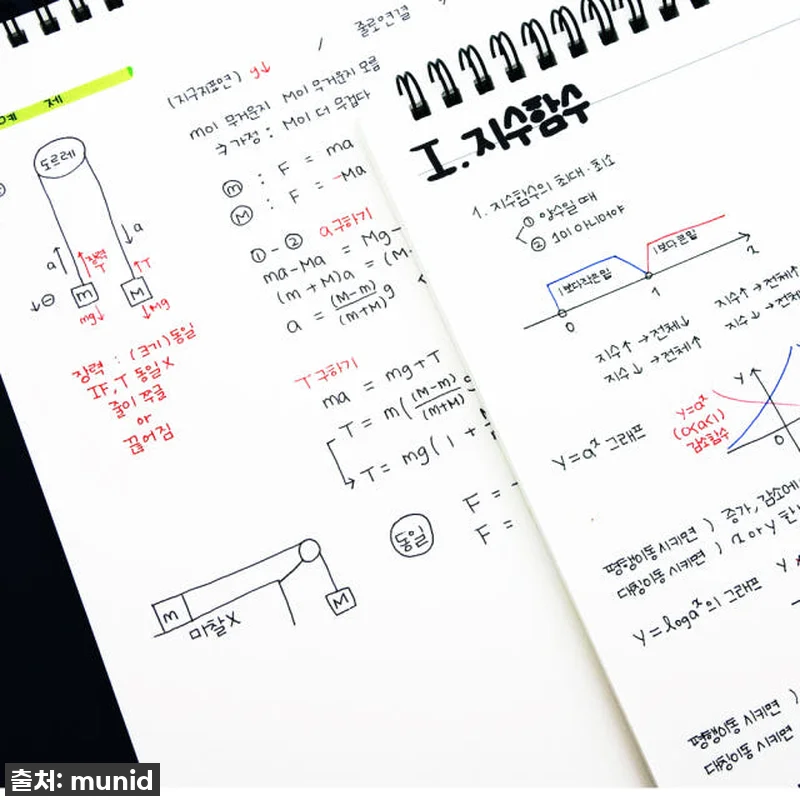 줄로연결
예 제
(지구지표면) g↓
m이 무거운지 M이 무거운지 모름
→ 가정 : M이 더 무겁다
도르레
ⓜ : F = ma
Ⓜ : F = -Ma
a
장력
T
a
T
m
M
⊖
mg↓
↓Mg
①-② a구하기
ma-Ma = Mg-
(m+M)a = (M-
a = (M-m)/(m+M) g
장력 : (크기)동일
IF, T 동일 X
줄이 쭈글
or
끊어짐
T구하기
ma = mg+T
T = m((M-m)/(m+M) g
T = mg(1 +
동일
F = -
F =
m
마찰X
M
I. 지수함수
1. 지수함수의 최대·최소
① 양수일 때
② 1이 아니어야
1보다작은밑
1보다큰밑
0 1
지수↑ → 전체↓ 지수↑ → 전체↑
지수↓ → 전체↑ 지수↓ → 전체
y=aˣ 그래프
y=aˣ
(0<a<1)
감소함수
y
0
평행이동 시키면 ) 증가, 감소에
대칭이동 시키면 ) x or y 한
y=logaˣ의 그래프 y
평행이동 시키면 )
대칭이동 시키면
출처: munid